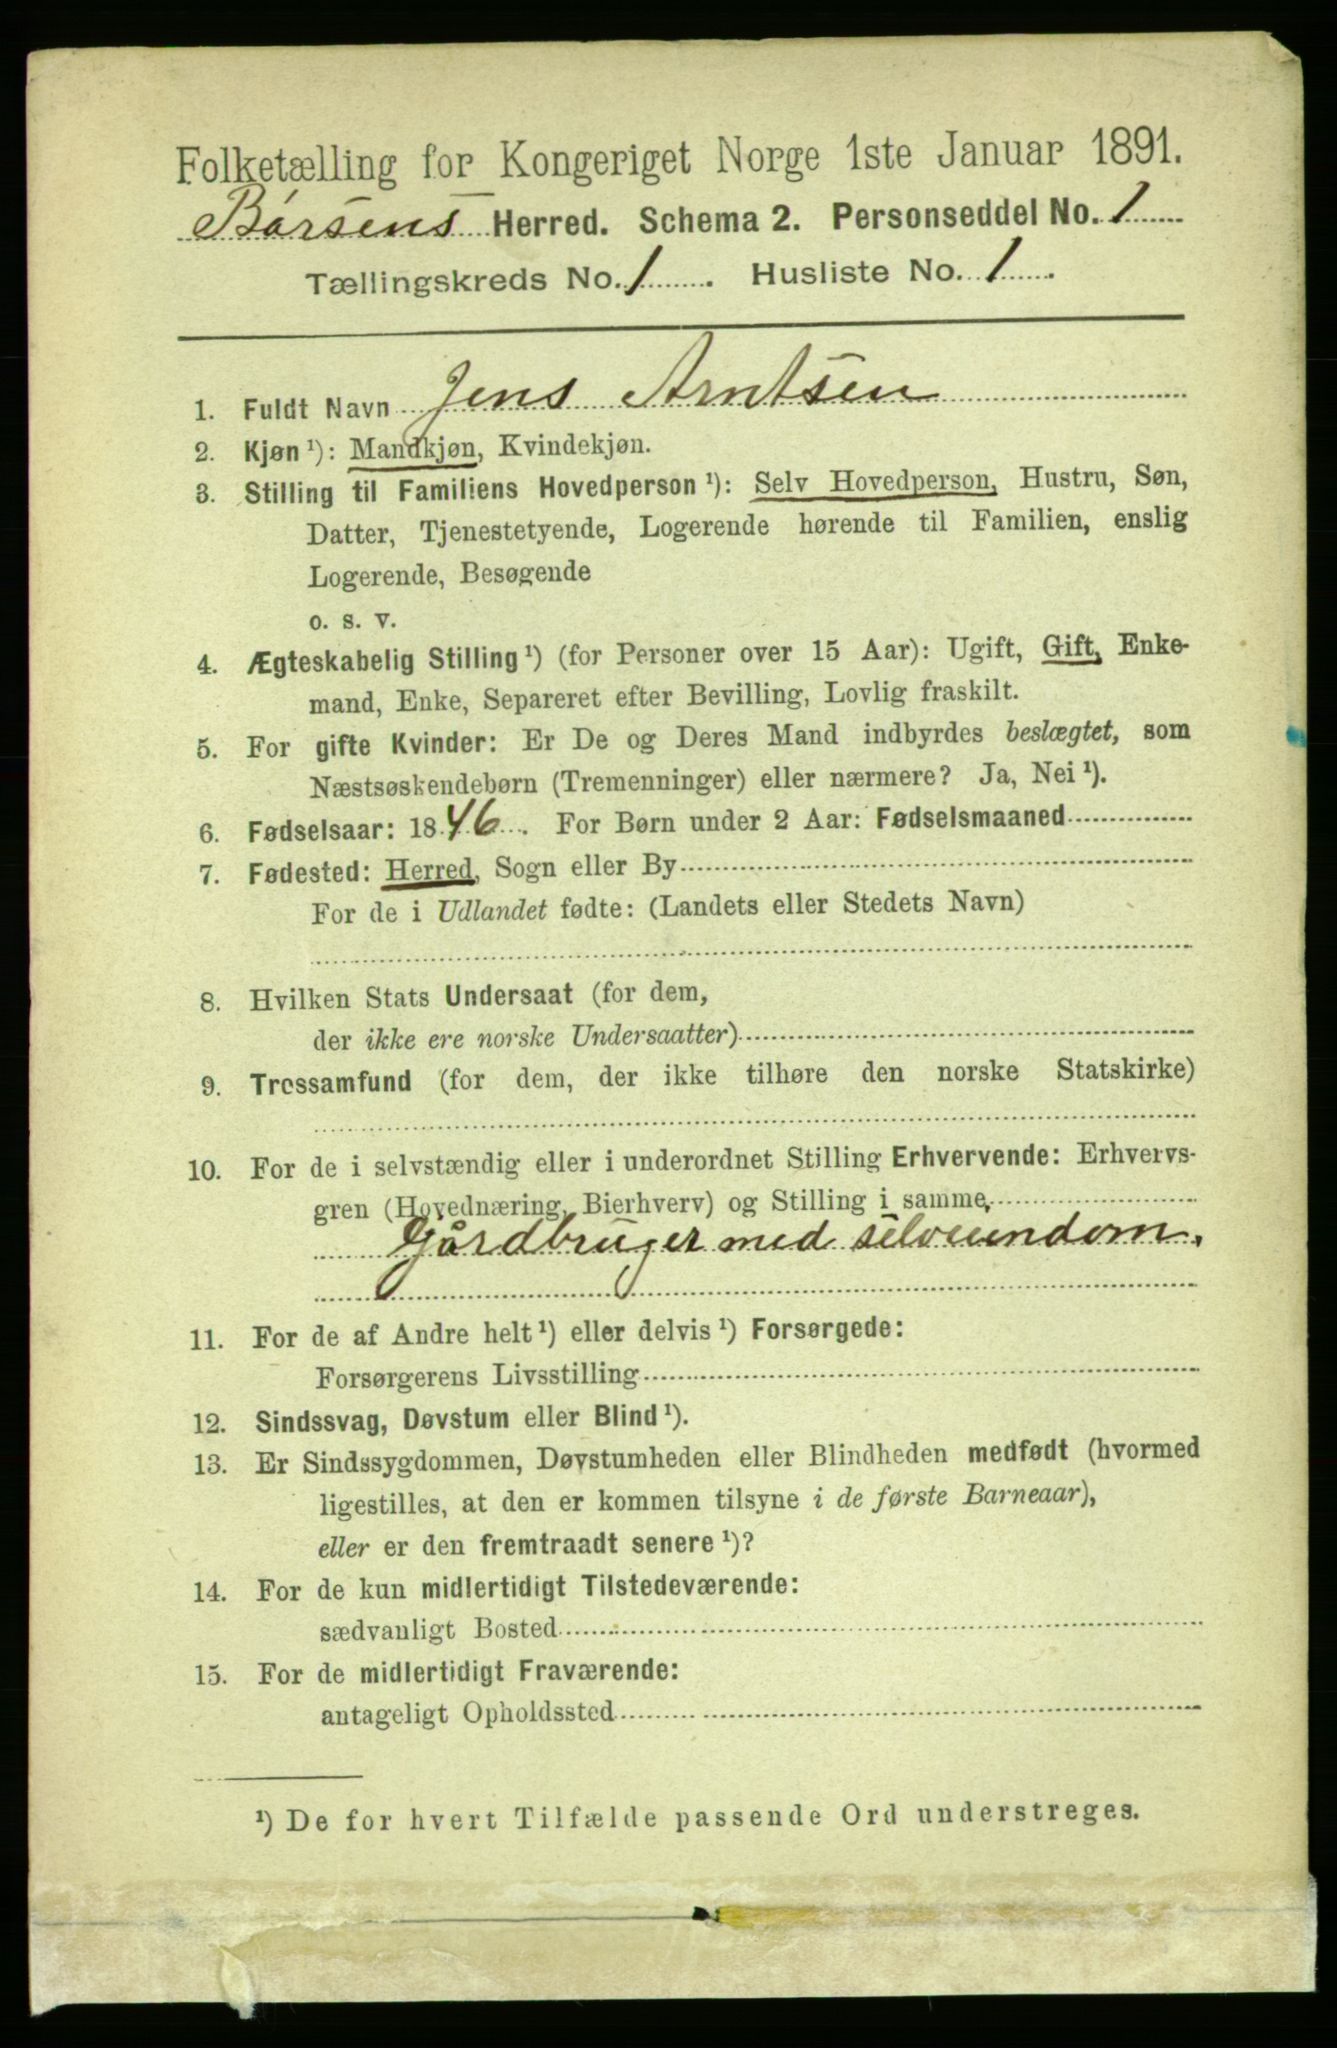 Folketælling for Kongeriget Norge 1ste Januar 1891.
Børsens Herred. Schema 2. Personseddel No. 1
Tællingskreds No. 1. Husliste No. 1.
1. Fuldt Navn Jens Arntsen
2. Kjøn ¹): Mandkjøn, Kvindekjøn.
3. Stilling til Familiens Hovedperson ¹): Selv Hovedperson, Hustru, Søn,
Datter, Tjenestetyende, Logerende hørende til Familien, enslig
Logerende, Besøgende
o. s. v.
4. Ægteskabelig Stilling ¹) (for Personer over 15 Aar): Ugift, Gift, Enke-
mand, Enke, Separeret efter Bevilling, Lovlig fraskilt.
5. For gifte Kvinder: Er De og Deres Mand indbyrdes beslægtet, som
Næstsøskendebørn (Tremenninger) eller nærmere? Ja, Nei ¹).
6. Fødselsaar: 1846. For Børn under 2 Aar: Fødselsmaaned
7. Fødested: Herred, Sogn eller By
For de i Udlandet fødte: (Landets eller Stedets Navn)
8. Hvilken Stats Undersaat (for dem,
der ikke ere norske Undersaatter)
9. Trossamfund (for dem, der ikke tilhøre den norske Statskirke)
10. For de i selvstændig eller i underordnet Stilling Erhvervende: Erhvervs-
gren (Hovednæring, Bierhverv) og Stilling i samme.
Gårdbruger med selveiendom.
11. For de af Andre helt ¹) eller delvis ¹) Forsørgede:
Forsørgerens Livsstilling
12. Sindssvag, Døvstum eller Blind ¹).
13. Er Sindssygdommen, Døvstumheden eller Blindheden medfødt (hvormed
ligestilles, at den er kommen tilsyne i de første Barneaar),
eller er den fremtraadt senere ¹)?
14. For de kun midlertidigt Tilstedeværende:
sædvanligt Bosted
15. For de midlertidigt Fraværende:
antageligt Opholdssted
¹) De for hvert Tilfælde passende Ord understreges.